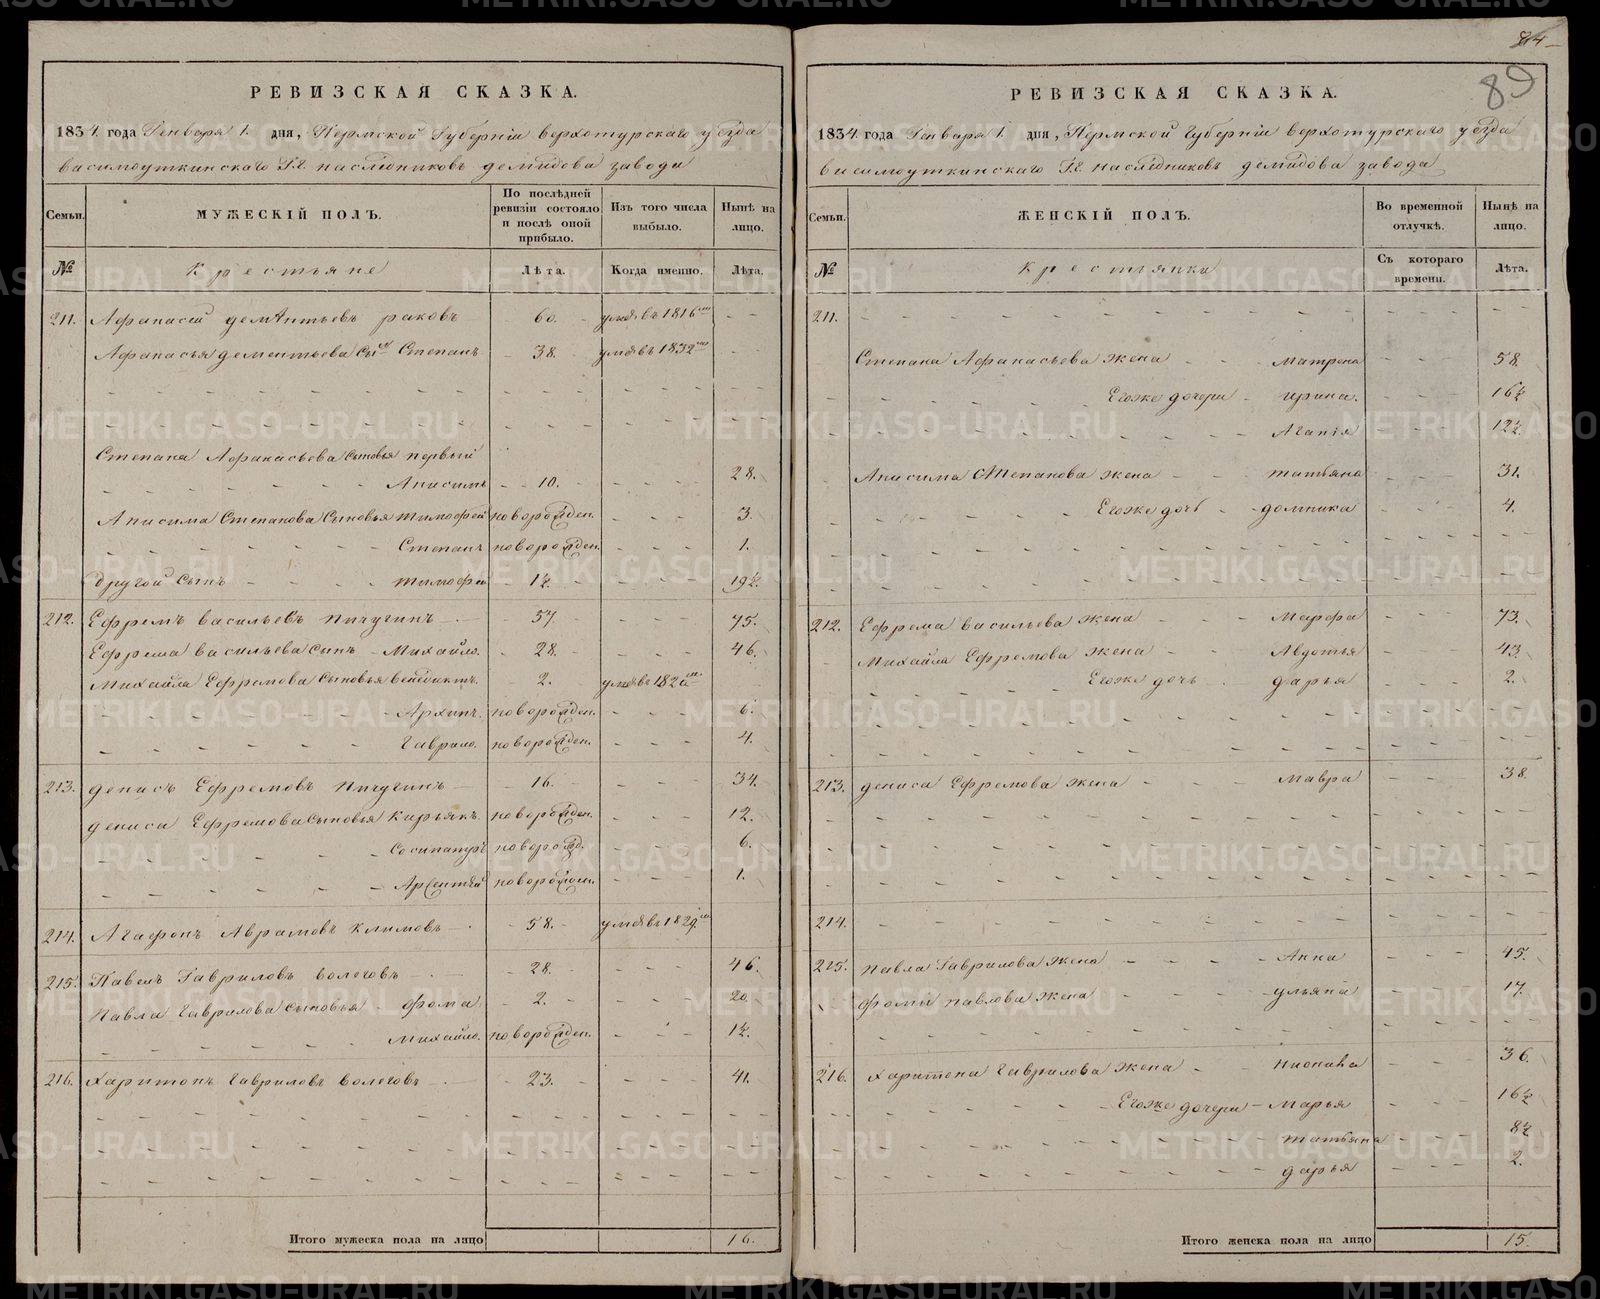 84
89
РЕВИЗСКАЯ СКАЗКА.
1834. года Генваря 1. дня, Пермской Губерніи верхотурскаго уезда
висимоуткинскаго Г.Г. наследниковъ демидова завода
Семьи.
МУЖЕСКІЙ ПОЛЪ.
По послѣдней ревизіи состояло и послѣ оной прибыло.
Изъ того числа выбыло.
Нынѣ на лицо.
№
Крестьяне
Лѣта.
Когда именно.
Лѣта.
211. Афанасій дементьевъ раковъ 60. умре въ 1816
Афанасья дементьева сынъ Степанъ 38. умре въ 1832
Степана Афанасьева Сыновья первый
Анисимъ 10. 28.
Анисима Степанова Сыновья тимофей новорожден. 3.
Степанъ новорожден. 1.
другой сынъ тимофей 1½ 19½
212. Ефремъ васильевъ Пичугинъ 57. 75.
Ефрема васильева сынъ Михайло. 28. 46.
Михайла Ефремова Сыновья венедиктъ. 2. умре въ 1826
Архипъ. новорожден. 6.
Гаврило. новорожден. 4.
213. денисъ Ефремовъ Пичугинъ 16. 34.
дениса Ефремова Сыновья Кирьякъ. новорожден. 12.
Сосипатръ новорожд. 6.
Арсентій новорожден. 1.
214. Агафонъ Аврамовъ Климовъ 58. умре въ 1829
215. Павелъ Гавриловъ вологовъ 28. 46.
Павла Гаврилова Сыновья фома 2. 20.
Михайло. новорожден. 1½
216. Харитонъ Гавриловъ вологовъ 23. 41.
Итого мужеска пола на лицо 16.
РЕВИЗСКАЯ СКАЗКА.
1834. года Генваря 1. дня, Пермской Губерніи верхотурскаго уезда
висимоуткинскаго Г.Г. наследниковъ демидова завода
Семьи.
ЖЕНСКІЙ ПОЛЪ.
Во временной отлучкѣ.
Нынѣ на лицо.
№
Крестьянки
Съ котораго времени.
Лѣта.
211.
Степана Афанасьева жена Матрена 58.
Егоже дочери ирина. 16½
Агапія 12½
Анисима Степанова жена татьяна 31.
Егоже дочь домника 4.
212. Ефрема васильева жена Марфа 73.
Михайла Ефремова жена Авдотья 43.
Егоже дочь дарья 2.
213. дениса Ефремова жена Мавра 38.
214.
215. Павла Гаврилова жена Анна 45.
Фомы павлова жена ульяна 17.
216. Харитона Гаврилова жена 36.
Егоже дочери Марья 16½
татьяна 8½
дарья 2.
Итого женска пола на лицо 15.
METRIKI.GASO-URAL.RU